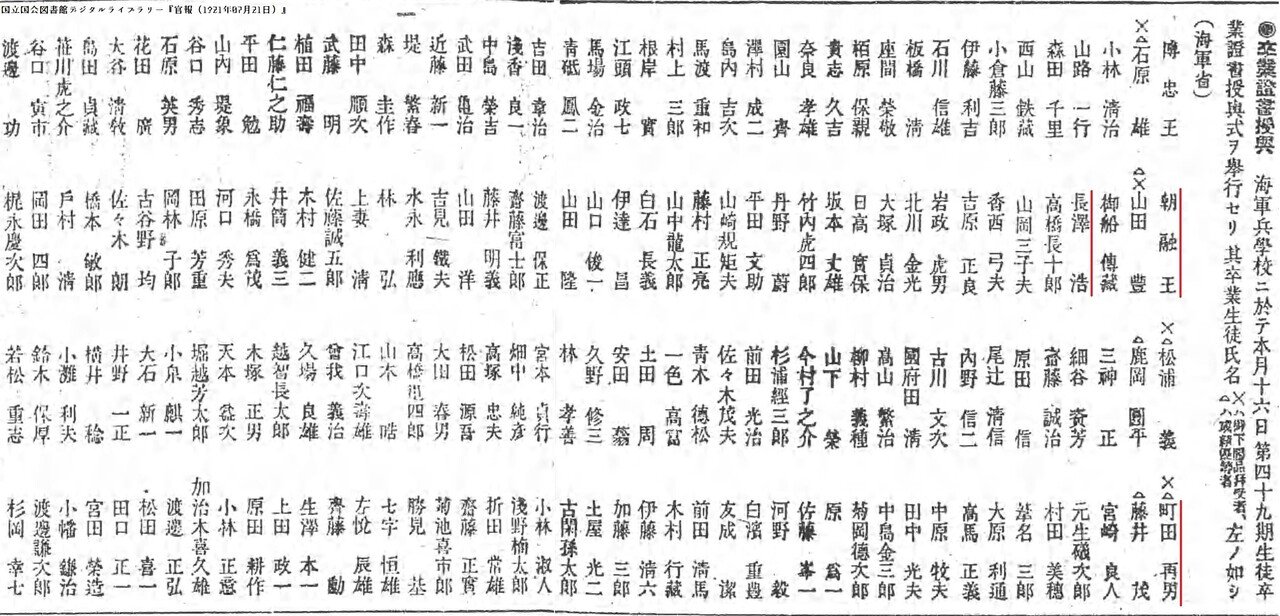 国立国会図書館デジタルライブラリー『官報（1921年07月21日）』
◉卒業證書授與 海軍兵學校ニ於テ本月十六日第四十九期生徒卒
業證書授與式ヲ擧行セリ其卒業生徒氏名 左ノ如シ
（海軍省）
博忠王 朝融王 ×松浦義 ×△町田再男
×△石原雄 △×山田豐 △鹿岡圓平 △藤井茂
小林淸治 御船傳藏 三神正 宮崎良人
山路一行 長澤浩 細谷資芳 元生磯次郎
森田千里 高橋長十郎 齋藤誠治 村田美穂
西山鉄藏 山岡三子夫 原田信 葦名三郎
小倉藤三郎 香西弓夫 尾辻淸信 大原利通
伊藤利吉 吉原正良 內野信二 高馬正義
石川信雄 岩政虎男 古川文次 中原牧夫
板橋淸 北川金光 國府田淸 田中光夫
座間榮敬 大塚貞治 高山繁治 中島金三郎
栢原保親 日高實保 柳村義種 菊岡德次郎
貴志久吉 坂本丈雄 山下榮 原爲一
奈良孝雄 竹內虎四郎 今村了之介 佐藤峯一
園山齊 丹野蔚 杉浦經三郎 河野毅
澤村成二 平田文助 前田光治 白濱重豊
島內吉次 山崎規矩夫 佐々木茂夫 友成潔
馬渡重和 藤村正亮 靑木德松 前田淸馬
村上三郎 山中龍太郎 一色高富 木村行藏
根岸實 白石長義 土田周 伊藤淸六
江頭政七 伊達昌 安田 加藤三郎
馬場金治 山口俊一 久野修三 土屋光二
靑砥鳳二 山田隆 林孝善 古閑孫太郎
吉田章治 渡邊保正 宮本貞行 小林淑人
淺香良一 齋藤富士郎 畑中純彥 淺野楠太郎
中島榮吉 藤井明義 高塚忠夫 折田常雄
武田亀治 山田洋 松田源吾 齋藤正實
近藤新一 吉見鐵夫 大田春男 菊池喜市郎
堤繁春 水永利應 高橋四郎 勝見基
森圭作 林弘 山木晧 七字恒雄
田中順次 上妻淸 江口次壽雄 左 辰雄
武藤明 佐藤誠五郎 曾我義治 齋藤勳
植田福壽 木村健二 久場良雄 生澤本一
仁藤仁之助 井筒義三 越智長太郎 上田政一
平田勉 永橋爲茂 木塚正男 原田耕作
山內堤象 河口秀夫 天本益次 小林正意
谷口秀志 田原芳重 堀越芳太郎 加治木喜久雄
石原英男 岡林子郎 小泉麒一 渡邊正弘
花田廣 古谷野均 大石新一 松田喜一
大谷淸敎 佐々木朗 井野一正 田口正一
島田貞藏 橋本敏郎 横井稔 宮田榮造
笹川虎之介 戶村淸 小灘利夫 小幡鎌治
谷口寅市 岡田四郎 鈴木保厚 渡邊謙次郎
渡邊功 梶永慶次郎 若松重志 杉岡幸七